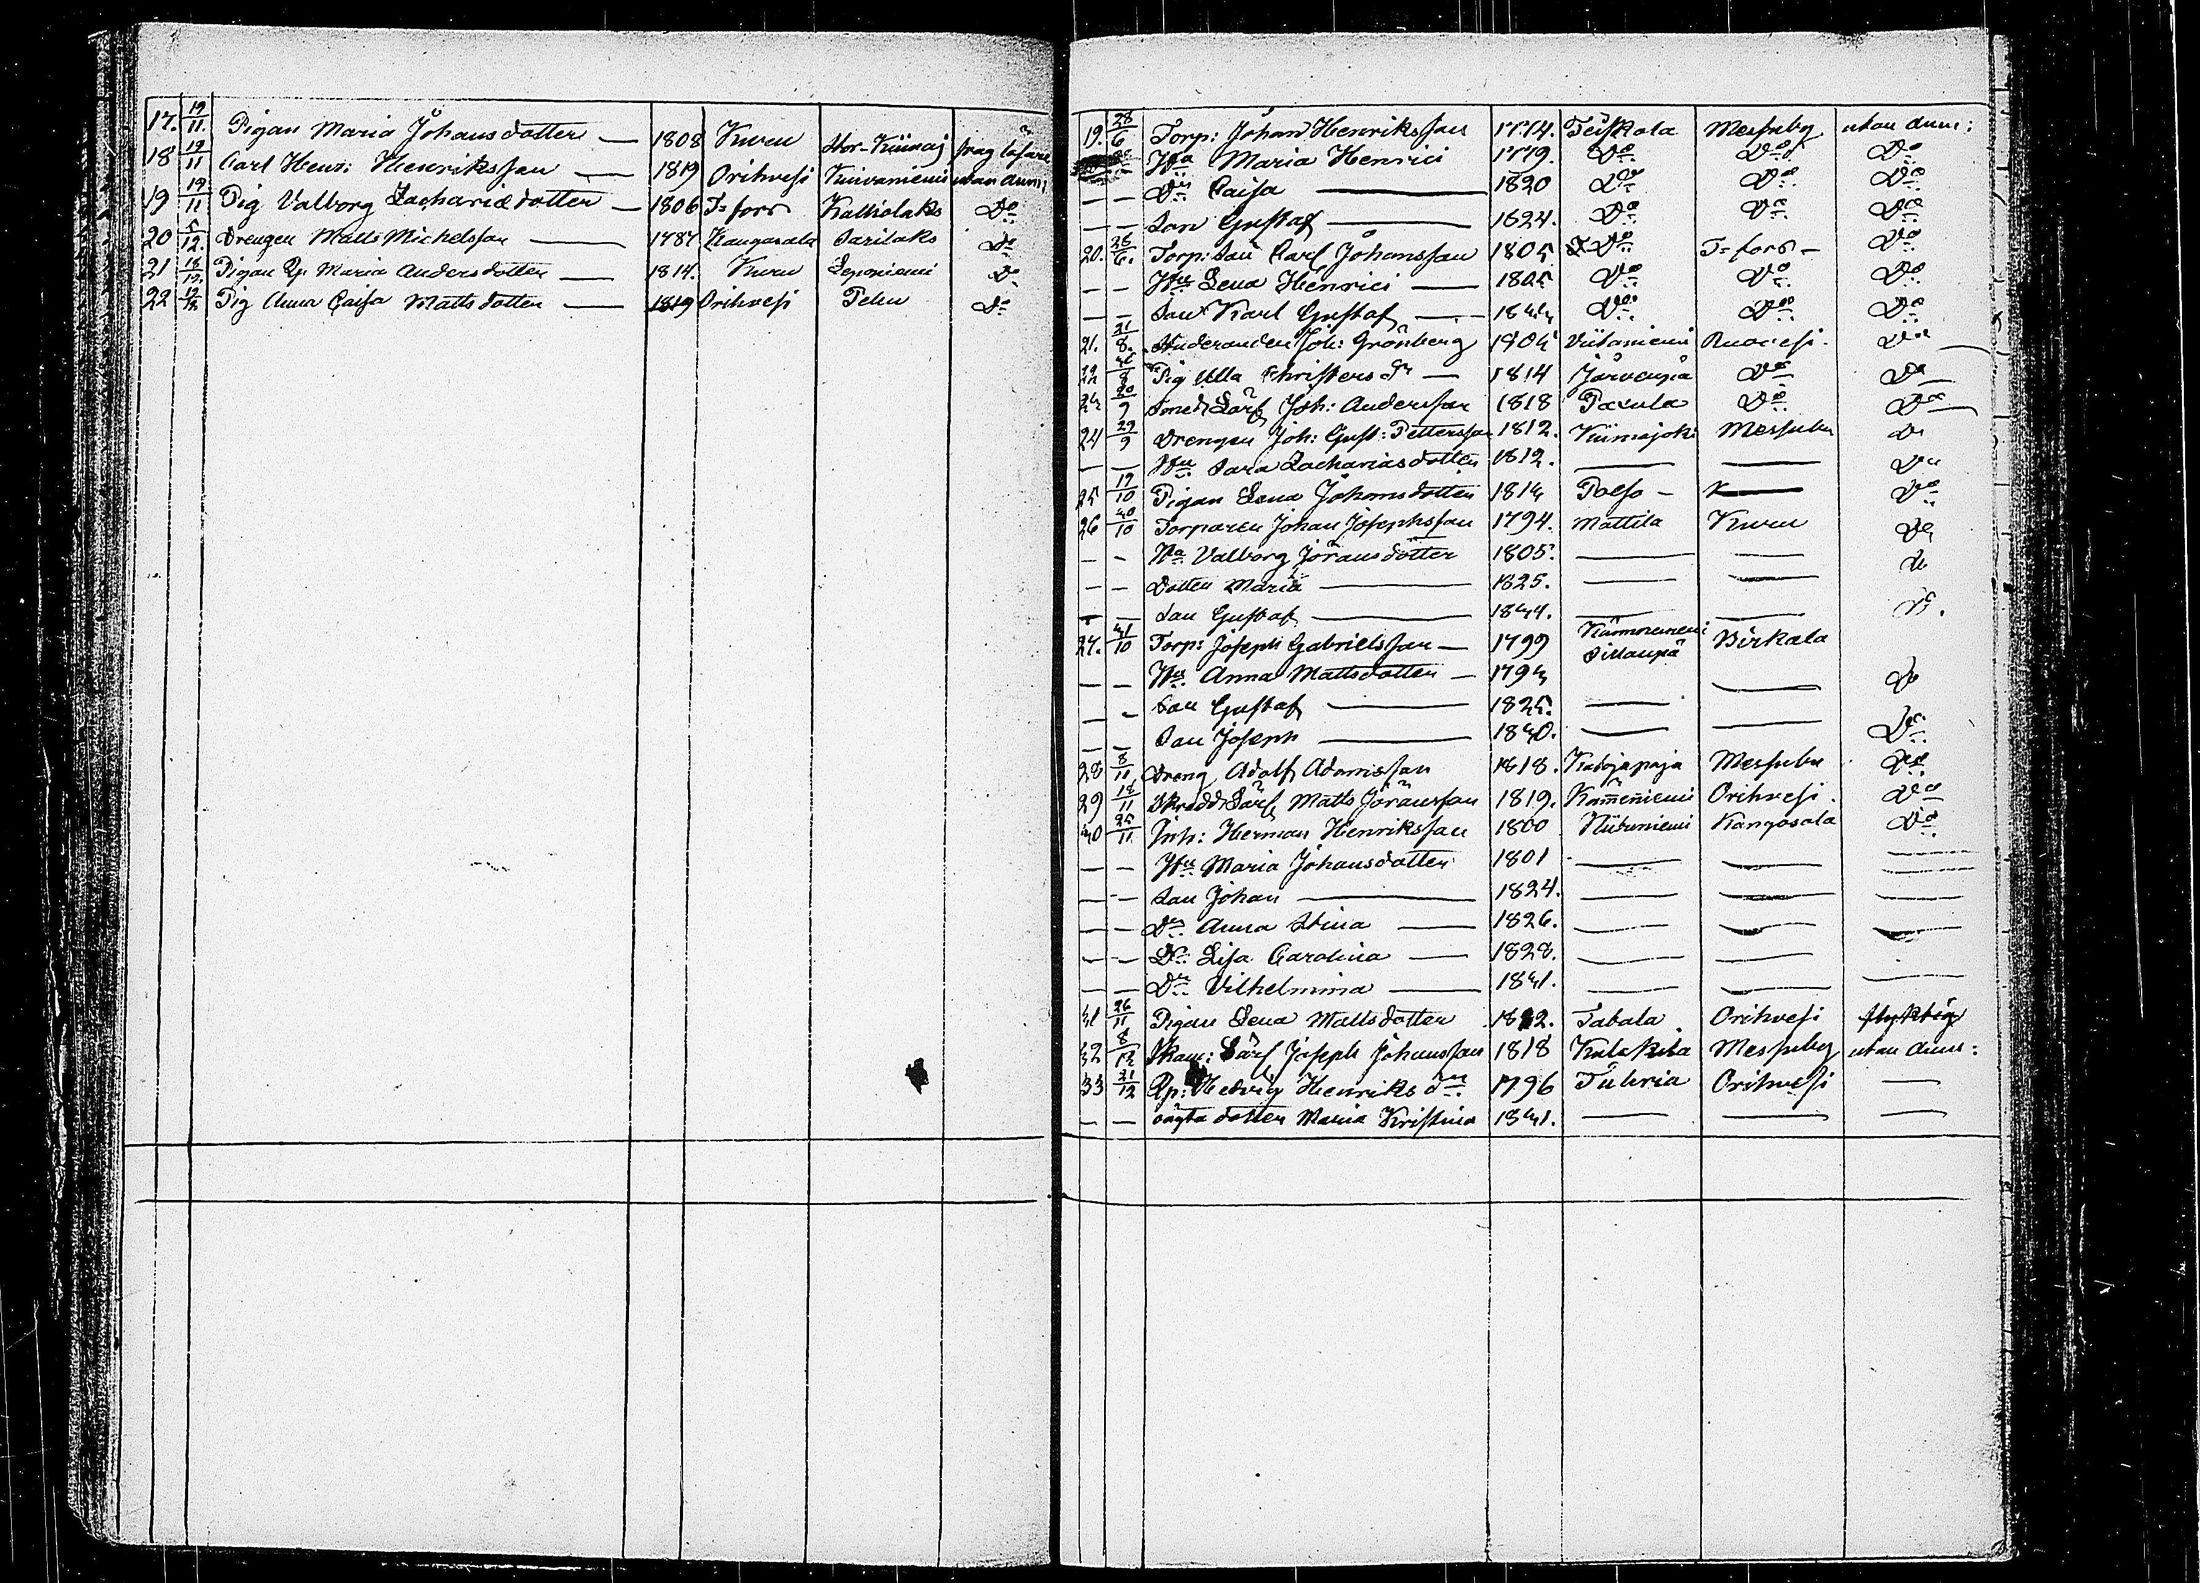 17. 19/11. Pigan Maria Johansdotter — 1808 Kuru Stor-Kiimaj
18 19/11 Carl Henr: Henriksson — 1819 Orihvesi Kuivaniemi utan anm:
19 19/11 Pig Valborg Zachariædotter — 1806 T=fors Kaltiolaks Do
20 5/12. Drengen Matts Michelsson — 1787 Kangasala Sarilaks Do
21 18/12. Pigan Qp Maria Andersdotter — 1814. Kuru Leponiemi Do
22 19/12 Pig Anna Caisa Mattsdotter — 1819 Orihvesi Pehu Do
19. 28/6 Torp: Johan Henriksson 1774. Teiskola Messuby utan anm:
Hu Maria Henrici 1779. Do Do Do
— — Dr Caisa — 1820 Do Do Do
— — Son Gustaf — 1824. Do Do Do
20. 28/6. Torp: Son Carl Johansson 1805 Do T=fors — Do
— — Hu Lena Henrici — 1805 Do Do Do
— — Son Karl Gustaf — Do Do Do
21. 21/8. Studeranden Joh: Grönberg 1805 Viitaniemi Ruovesi. Do
22 Pig Ulla Christers Dr — 1814 Järvenpä Do Do
23 20/9 Smeds Lärl Joh: Andersson 1818 Paavola Do Do
24 29/9 Drengen Joh: Gust: Pettersson 1812. Kiimajoki Messuby Do
— — Hu Sara Zachariasdotter 1812. — — Do
25 19/10 Pigan Lena Johansdotter 1813 Polso — — Do
26 30/10 Torparen Johan Josephsson 1794. Mattila Kuru Do
— — Hu Valborg Jöransdotter 1805. — — Do
— — Dotter Maria — 1825. — —
— — Son Gustaf — 1831. — — Do.
27. 31/10 Torp: Joseph Gabrielsson — 1799 Kämmenniemi Sillanpä Birkala
— — Hu Anna Mattsdotter — 1793 — Do
— — Son Gustaf — 1825. —
— — Son Joseph — 1830. — — Do
28 8/11 Dreng Adolf Adamsson 1818. Messuby Do
29 18/11 Skredd Lärl Matts Jöransson 1819. Kämeniemi Orihvesi. Do
30 25/11. Inh: Herman Henriksson 1800 Niiveniemi Kangasala Do
— — Hu Maria Johansdotter 1801 — — —
— — Son Johan — 1824. — — —
— — Dr Anna Stina — 1826. — — —
— — Dr Lisa Carolina — 1828. — —
— — Dr Vilhelmina — 1831. — — —
31 26/11 Pigan Lena Mattsdotter 1812. Tabala Orihvesi flyktig
32 8/12 Skom: Lärl Joseph Johansson 1818 Kulakila Messuby utan anm:
33 21/12 Qp: Hedvig Henriksdr 1796 Tuhria Orihvesi —
— — oägta dotter Maria Kristina 1831. — — —